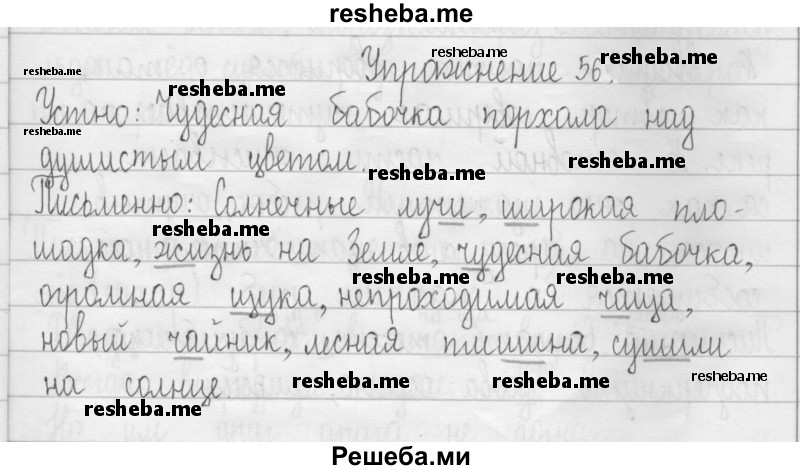 resheba.me
resheba.me
Упражнение 56. resheba.me
resheba.me
resheba.me
Устно: Чудесная бабочка порхала над
resheba.me
душистым цветом. resheba.me
resheba.me
Письменно: Солнечные лучи, широкая пло-
resheba.me
щадка, жизнь на Земле, чудесная бабочка,
resheba.me resheba.me
огромная щука, непроходимая чаща,
новый чайник, лесная тишина, сушили
на солнце resheba.me resheba.me resheba.me
resheba.me
Решеба.ми